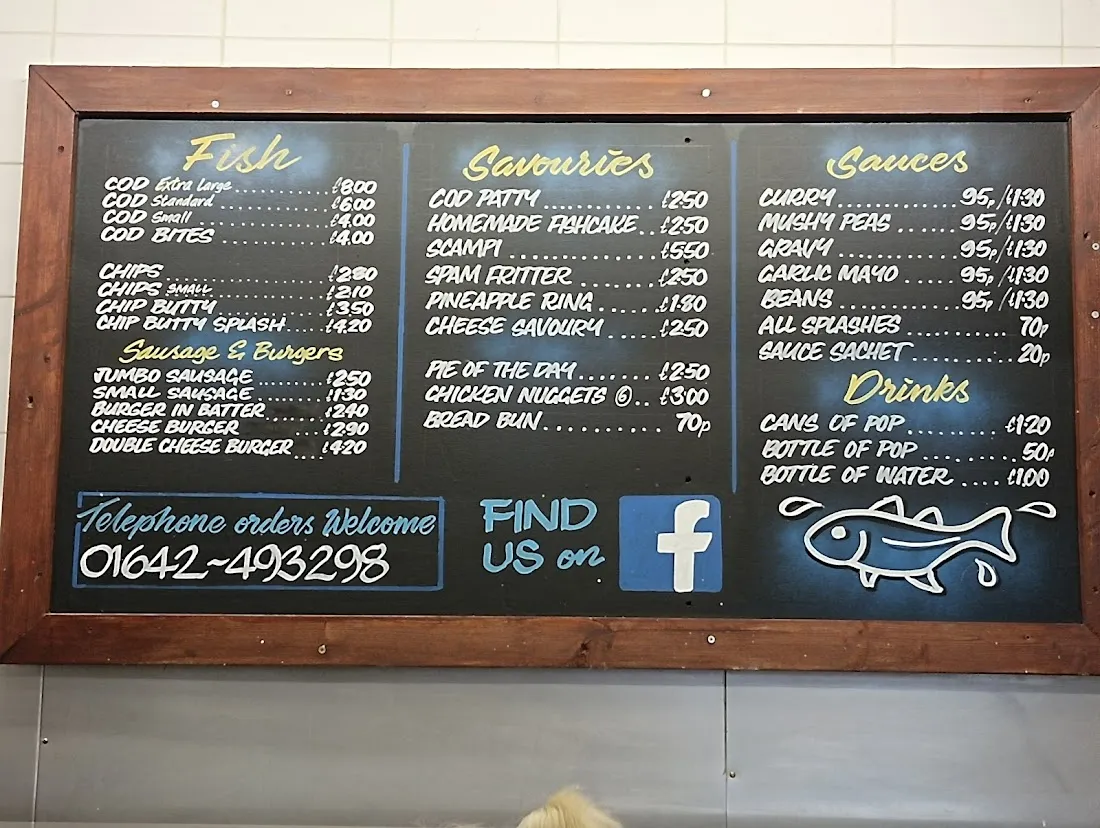 Fish
COD Extra Large ........... £8.00
COD Standard ........... £6.00
COD Small ........... £4.00
COD BITES ........... £4.00
CHIPS ........... £2.80
CHIPS SMALL ........... £2.10
CHIP BUTTY ........... £3.50
CHIP BUTTY SPLASH .... £4.20
Sausage & Burgers
JUMBO SAUSAGE ........ £2.50
SMALL SAUSAGE ........ £1.30
BURGER IN BATTER ....... £2.40
CHEESE BURGER ......... £2.90
DOUBLE CHEESE BURGER .... £4.20
Savouries
COD PATTY ............ £2.50
HOMEMADE FISHCAKE .. £2.50
SCAMPI ............... £5.50
SPAM FRITTER ......... £2.50
PINEAPPLE RING ....... £1.80
CHEESE SAVOURY ...... £2.50
PIE OF THE DAY ....... £2.50
CHICKEN NUGGETS ⑥ .. £3.00
BREAD BUN ........... 70p
Sauces
CURRY ............... 95p/£1.30
MUSHY PEAS ...... 95p/£1.30
GRAVY ............... 95p/£1.30
GARLIC MAYO ...... 95p/£1.30
BEANS ............... 95p/£1.30
ALL SPLASHES .......... 70p
SAUCE SACHET ......... 20p
Drinks
CANS OF POP ......... £1.20
BOTTLE OF POP ........ 50p
BOTTLE OF WATER .... £1.00
Telephone orders Welcome
01642~493298
FIND
US on f